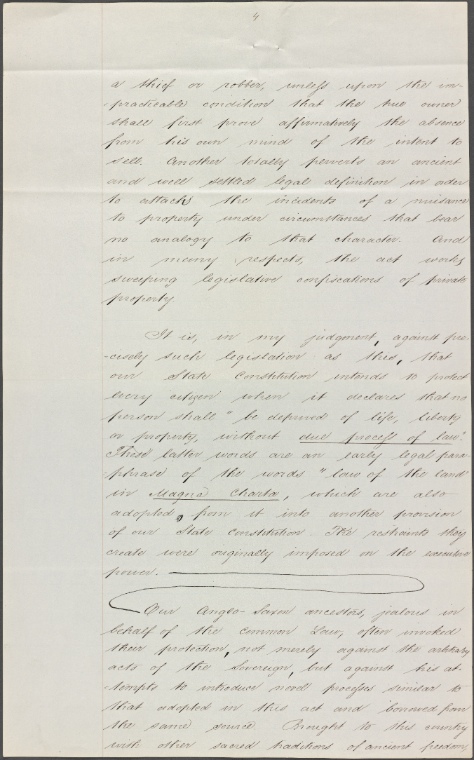 4
a thief or robber, unless upon the im-
practicable condition that the true owner
shall first prove affirmatively the absence
from his own mind of the intent to
sell. Another totally perverts an ancient
and well settled legal definition in order
to attach the incidents of a nuisance
to property under circumstances that bear
no analogy to that character. And
in many respects, the act works
sweeping legislative confiscations of private
property.
It is, in my judgment, against pre-
-cisely such legislation as this, that
our State Constitution intends to protect
every citizen when it declares that no
person shall "be deprived of life, liberty
or property, without due process of law."
These latter words are an early legal para-
phrase of the words "law of the land"
in Magna Charta, which are also
adopted, from it into another provision
of our State Constitution. The restraints they
create were originally imposed on the
power.
Our Anglo-Saxon ancestors, jealous in
behalf of the common Law, often invoked
their protection, not merely against the arbitrary
acts of the Sovereign, but against his at-
tempts to introduce novel processes similar to
that adopted in this act and borrowed from
the same source. Brought to this country
with other sacred traditions of ancient freedom